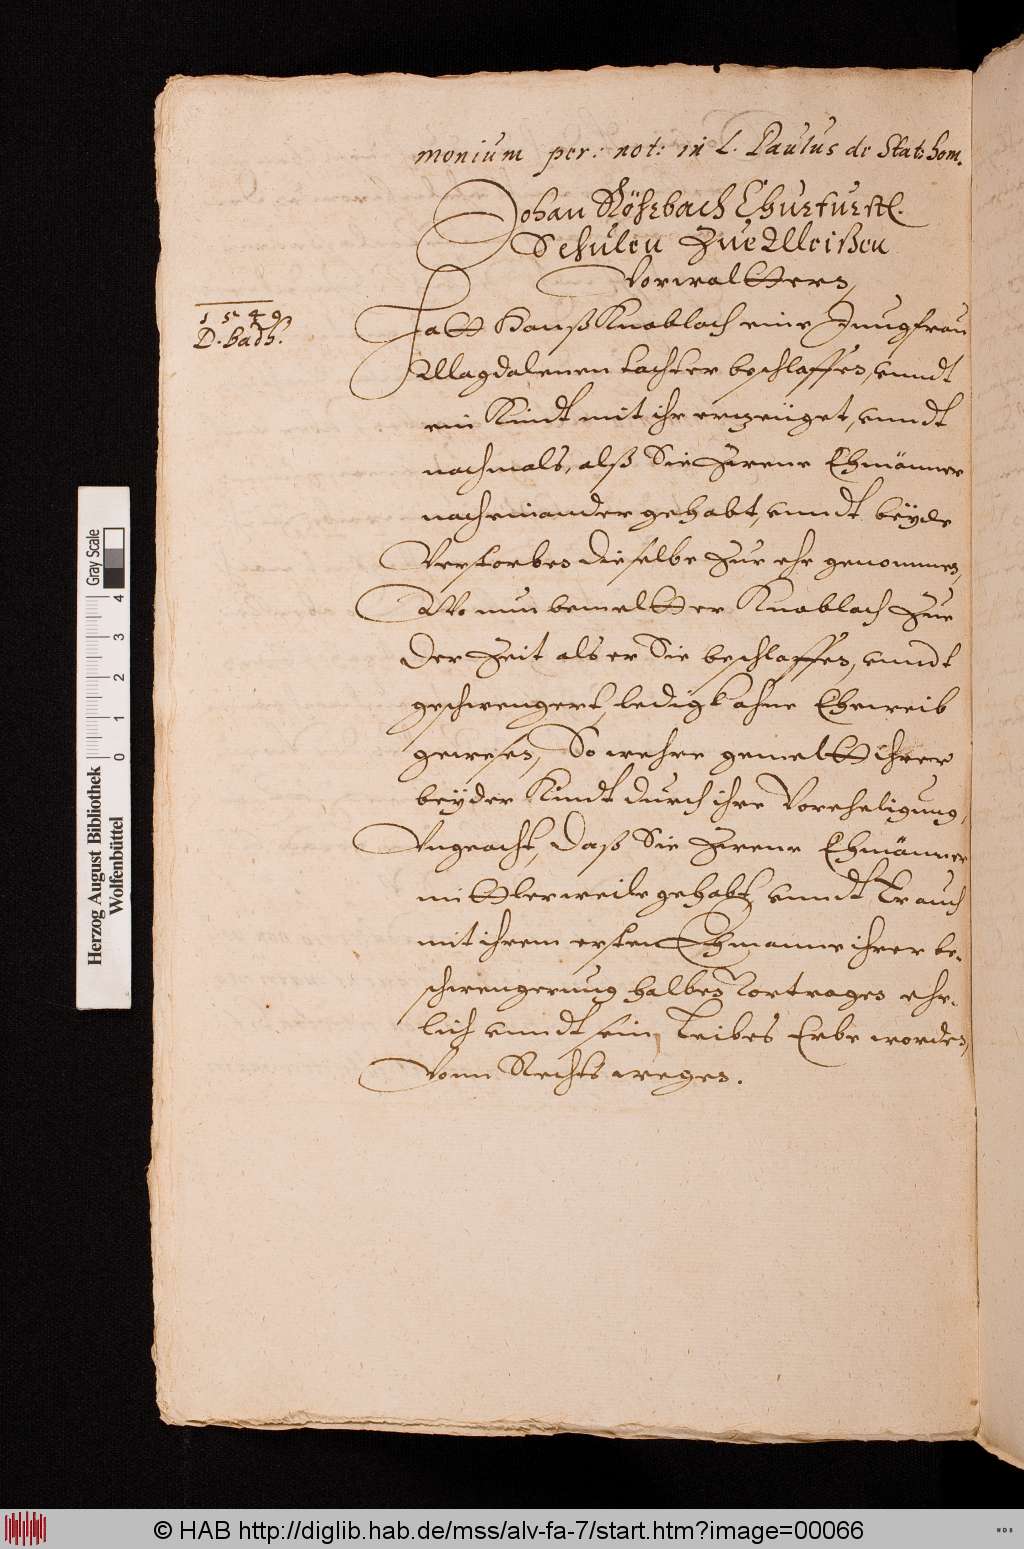 monium per: not: in L. Paulus de Stat: hom.
Johan Röhrbach Churfurstl.
Schulen Zue Meißen
Vorwaltters,
1549
D. Badh.
Hatt Hanß Knoblach eine Jungfrau
Magdalenen tochter beschlaffen, vnndt
ein Kindt mit ihr erzeüget, vnndt
nachmals, alß Sie Zwene Ehmänner
nacheinander gehabt, vnndt beyde
Verstorben dieselbe Zur ehe genommen,
Wo nun bemeltter Knoblach Zue
der Zeit als er Sie beschlaffen, vnndt
geschwengert, ledigk ahne Eheweib
gewesen, So wehre gemeltt ihrer
beyder Kindt durch ihre Vorehligung,
Vngeacht, daß Sie Zwene Ehmänner
mittlerweile gehabt, vnndt auch
mit ihrem ersten Ehmanne ihrer be-
schwengerung halben vortragen ehe-
lich vnndt sein Leibes Erbe worden,
Vonn Rechts wegen.
Gray Scale
0 1 2 3 4
Herzog August Bibliothek
Wolfenbüttel
© HAB http://diglib.hab.de/mss/alv-fa-7/start.htm?image=00066